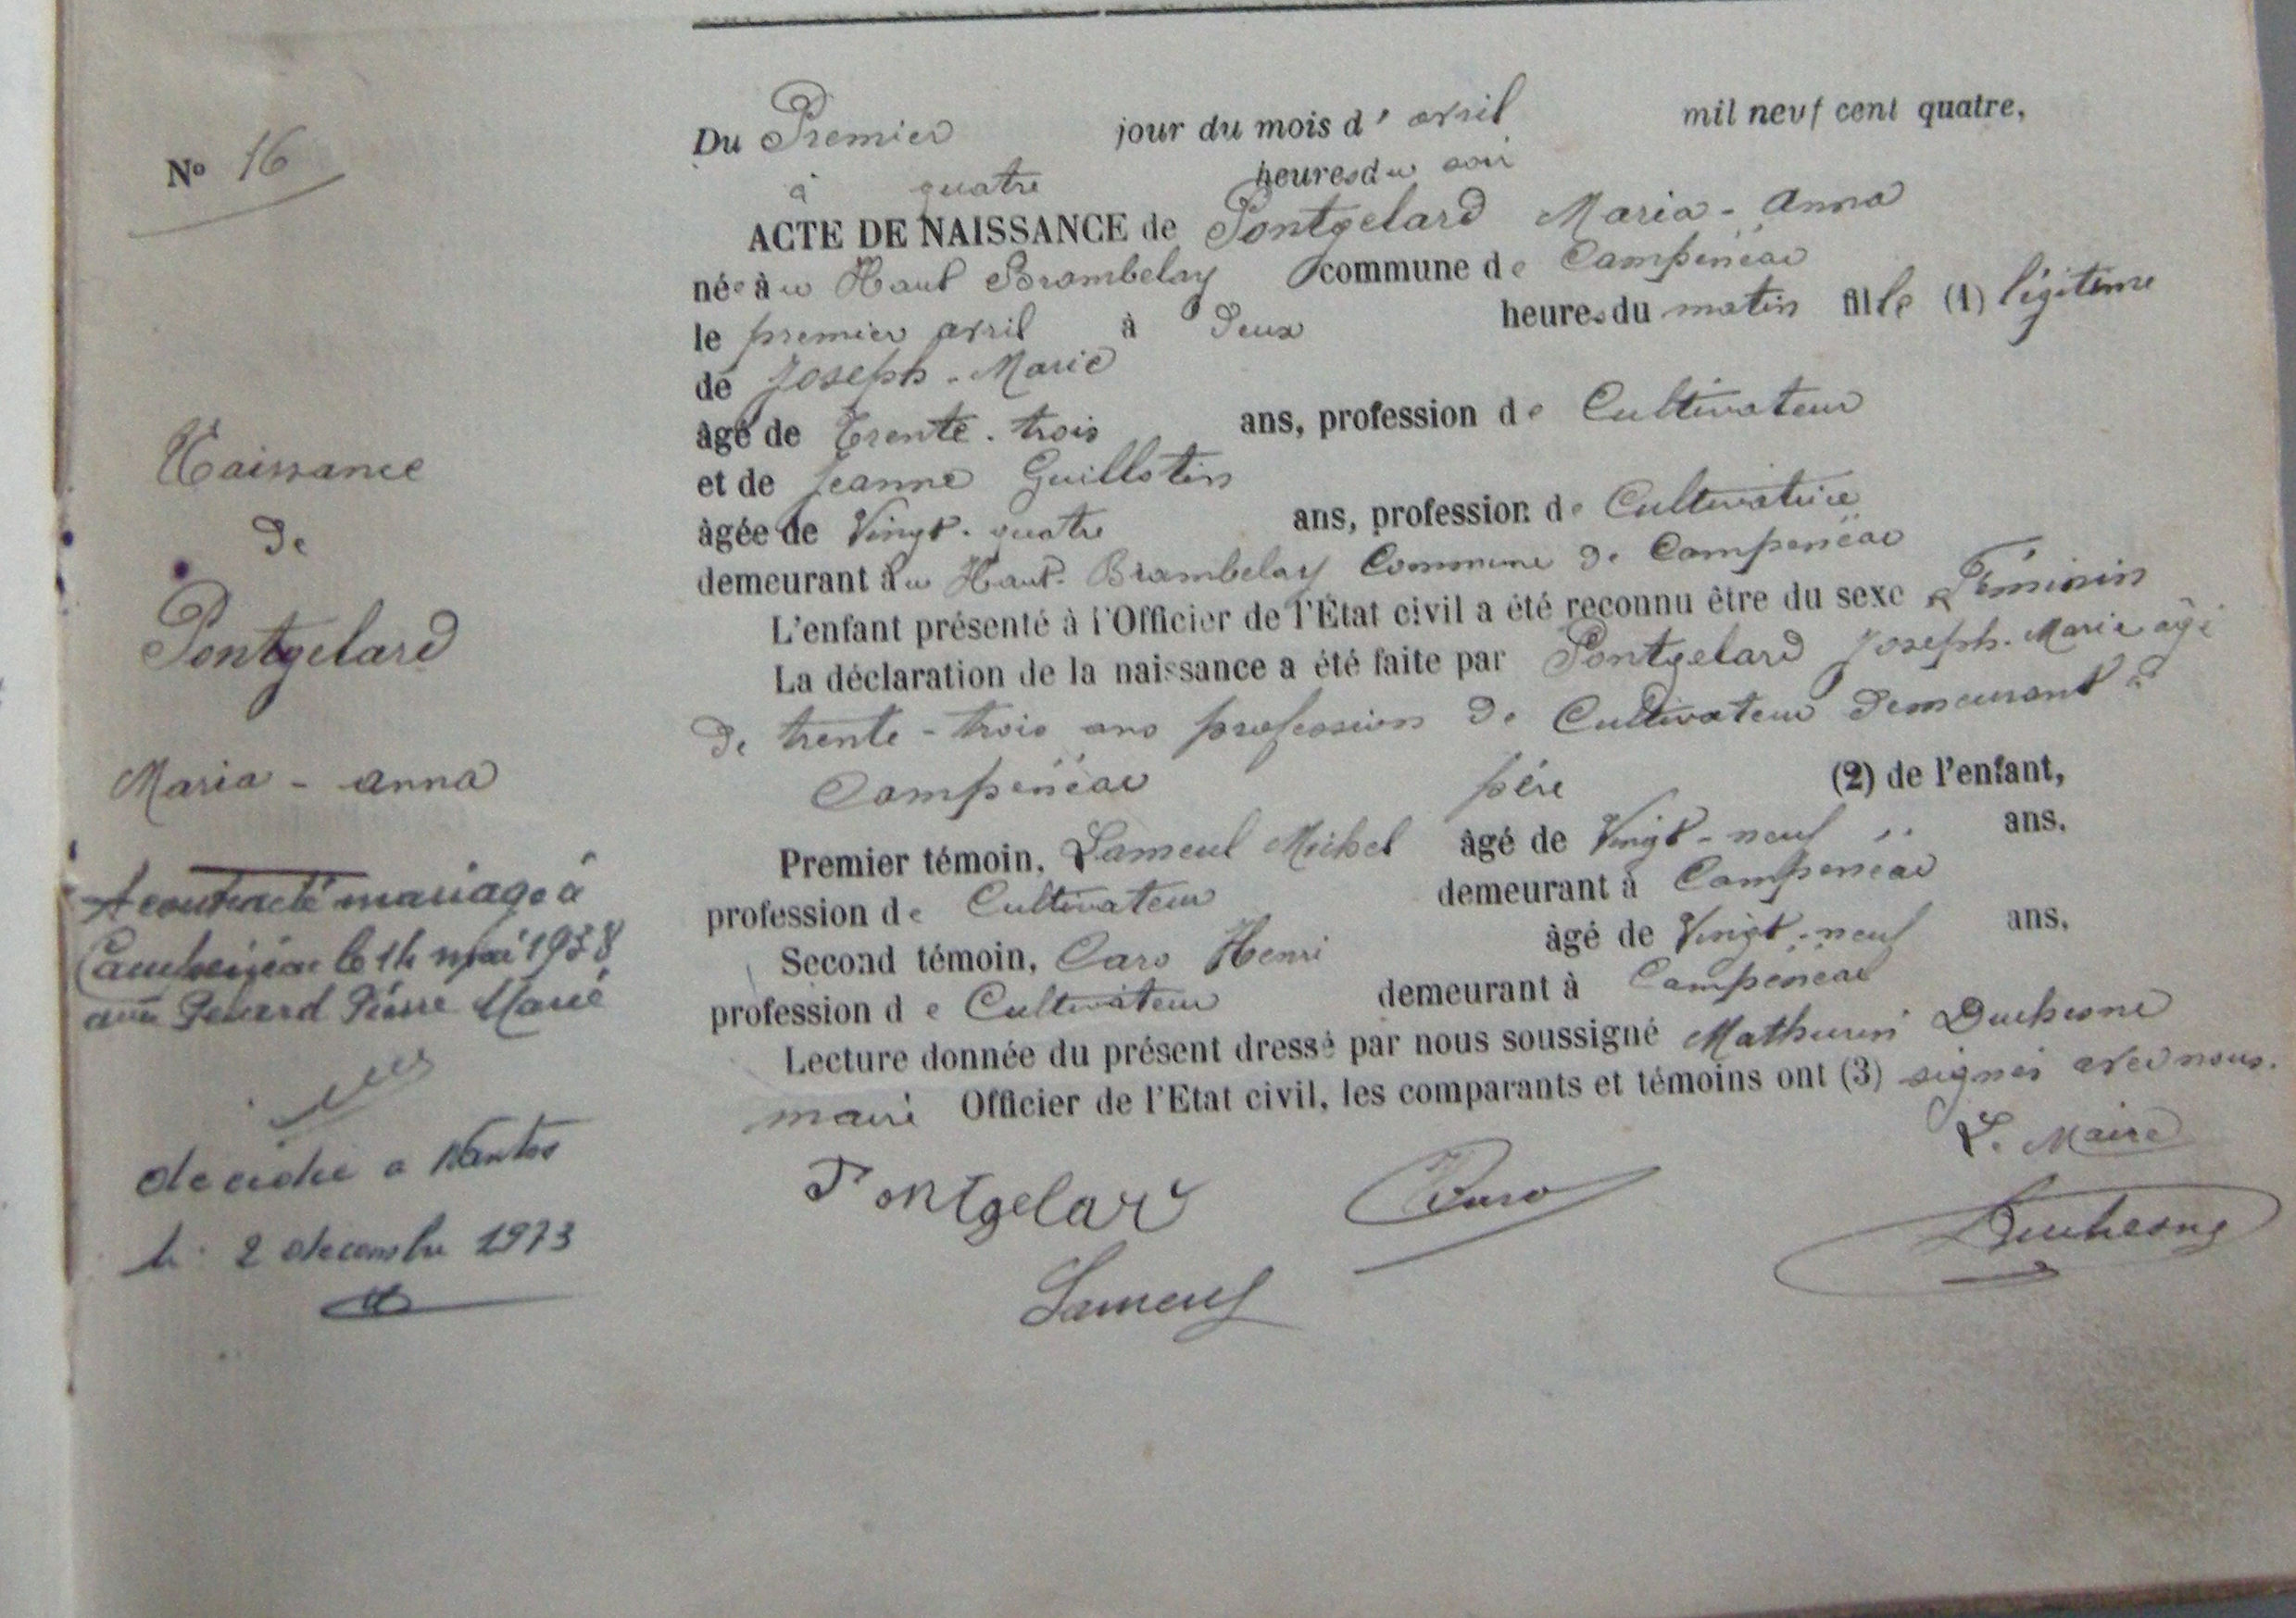 Nº 16
Naissance
de
Pontgelard
Maria - Anna
A contracté mariage à
Campénéac le 14 mai 19
avec Pierre Marie
décédée a Nantes
le 2 décembre 1973
Du Premier jour du mois d' avril mil neuf cent quatre,
à quatre heures du soir
ACTE DE NAISSANCE de Pontgelard Maria - Anna
née à u Haut Brambelay commune de Campénéac
le premier avril à deux heures du matin fille (1) légitime
de Joseph - Marie
âgé de trente - trois ans, profession de Cultivateur
et de Jeanne Guillotin
âgée de Vingt - quatre ans, profession de Cultivatrice
demeurant au Haut - Brambelay Commune de Campénéac
L'enfant présenté à l'Officier de l'État civil a été reconnu être du sexe Féminin
La déclaration de la naissance a été faite par Pontgelard Joseph - Marie âgé
de trente - trois ans profession de Cultivateur demeurant à
Campénéac père (2) de l'enfant,
Premier témoin, Lameul Michel âgé de Vingt - neuf ans,
profession de Cultivateur demeurant à Campénéac
Second témoin, Caro Henri âgé de Vingt - neuf ans,
profession de Cultivateur demeurant à Campénéac
Lecture donnée du présent dressé par nous soussigné Mathurin Duchesne
maire Officier de l'Etat civil, les comparants et témoins ont (3) signés avec nous.
Le Maire
Pontgelard Caro Duchesne
Lameul